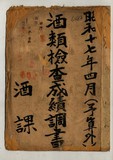 昭和十七年四月(予算外)
酒類檢査成績調書
酒課